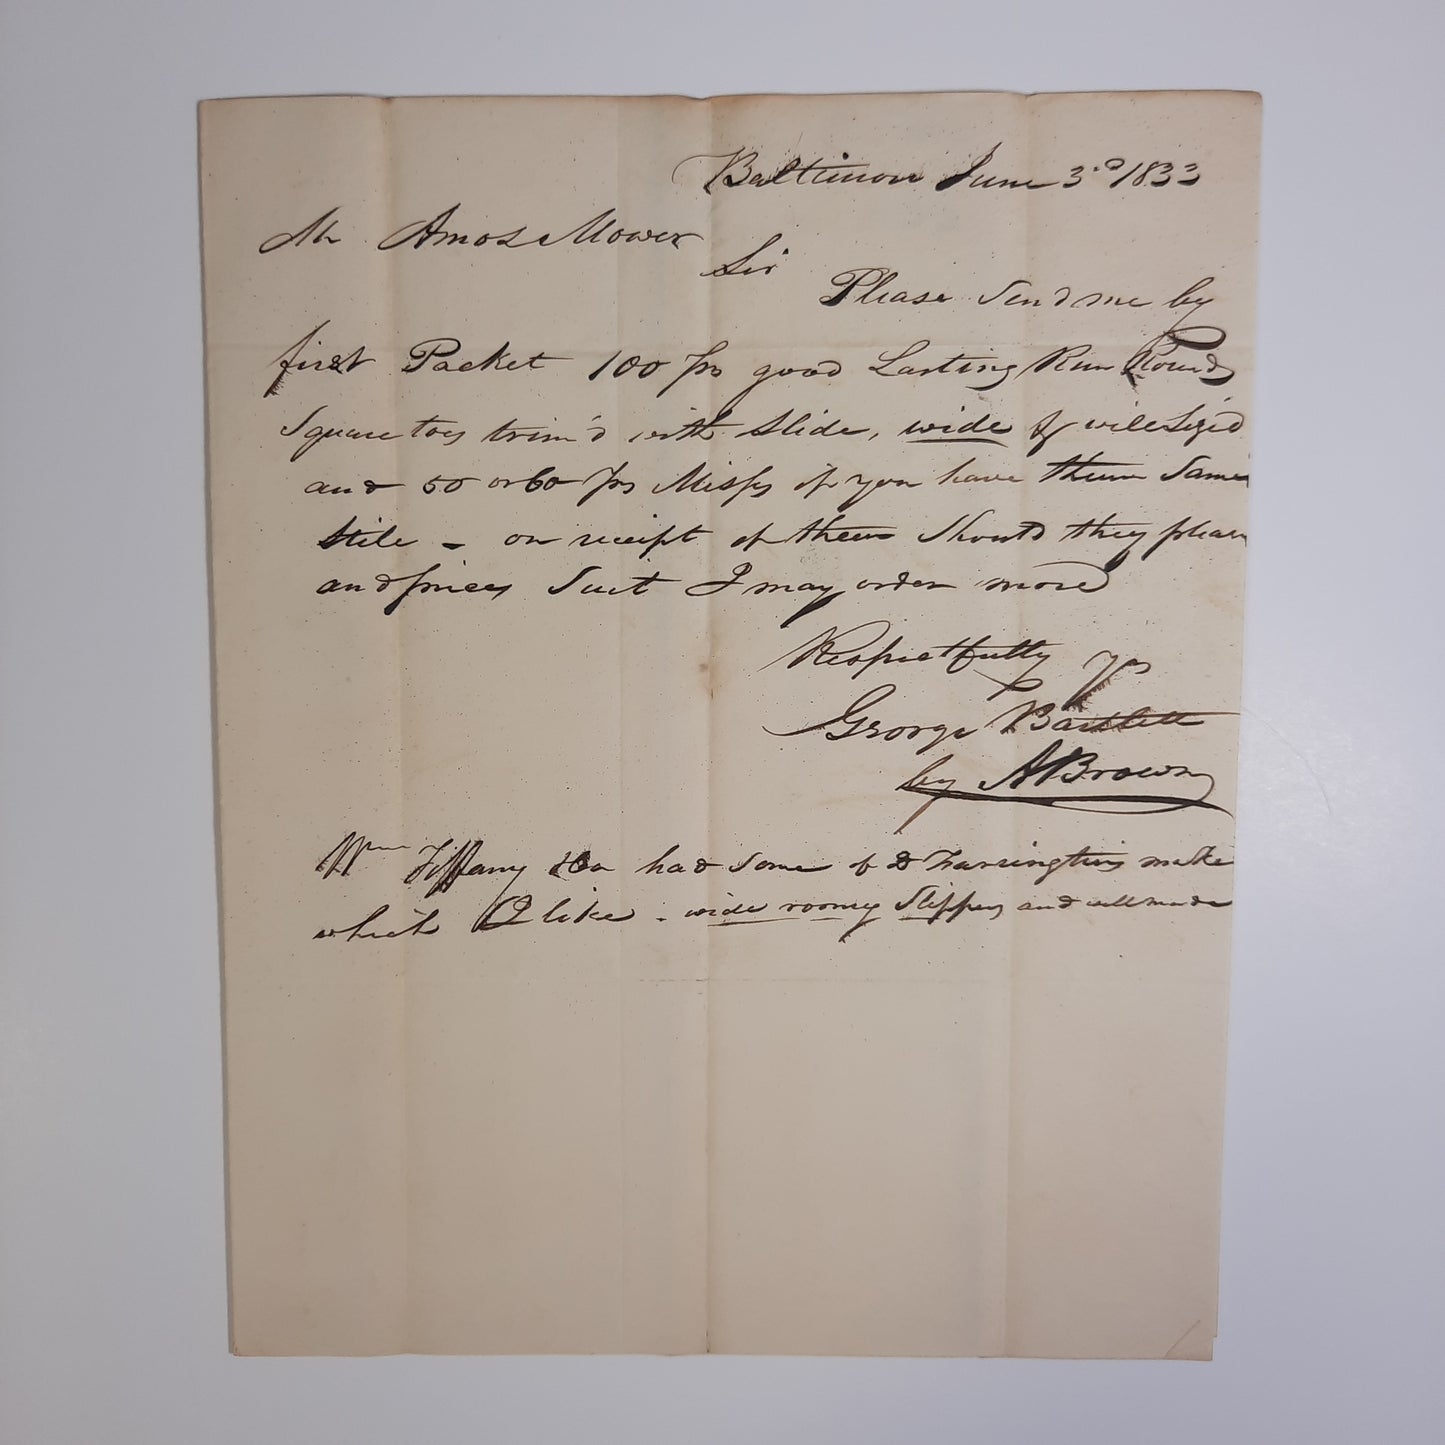 Baltimore June 3.d 1833
Mr Amos Mower
Sir
Please Send me by
first Packet 100 prs good Lasting Run Round
Square toes trim'd with Slide, wide & well Sized
and 50 or 60 prs Misses if you have them Same
Stile - on receipt of them Should they please
and prices Suit I may order more
Respectfully Yrs
George Bartlett
by A Brown
Wm Tiffany & Co had Some of Farringtons make
which I like - wide roomy Slippers and well made